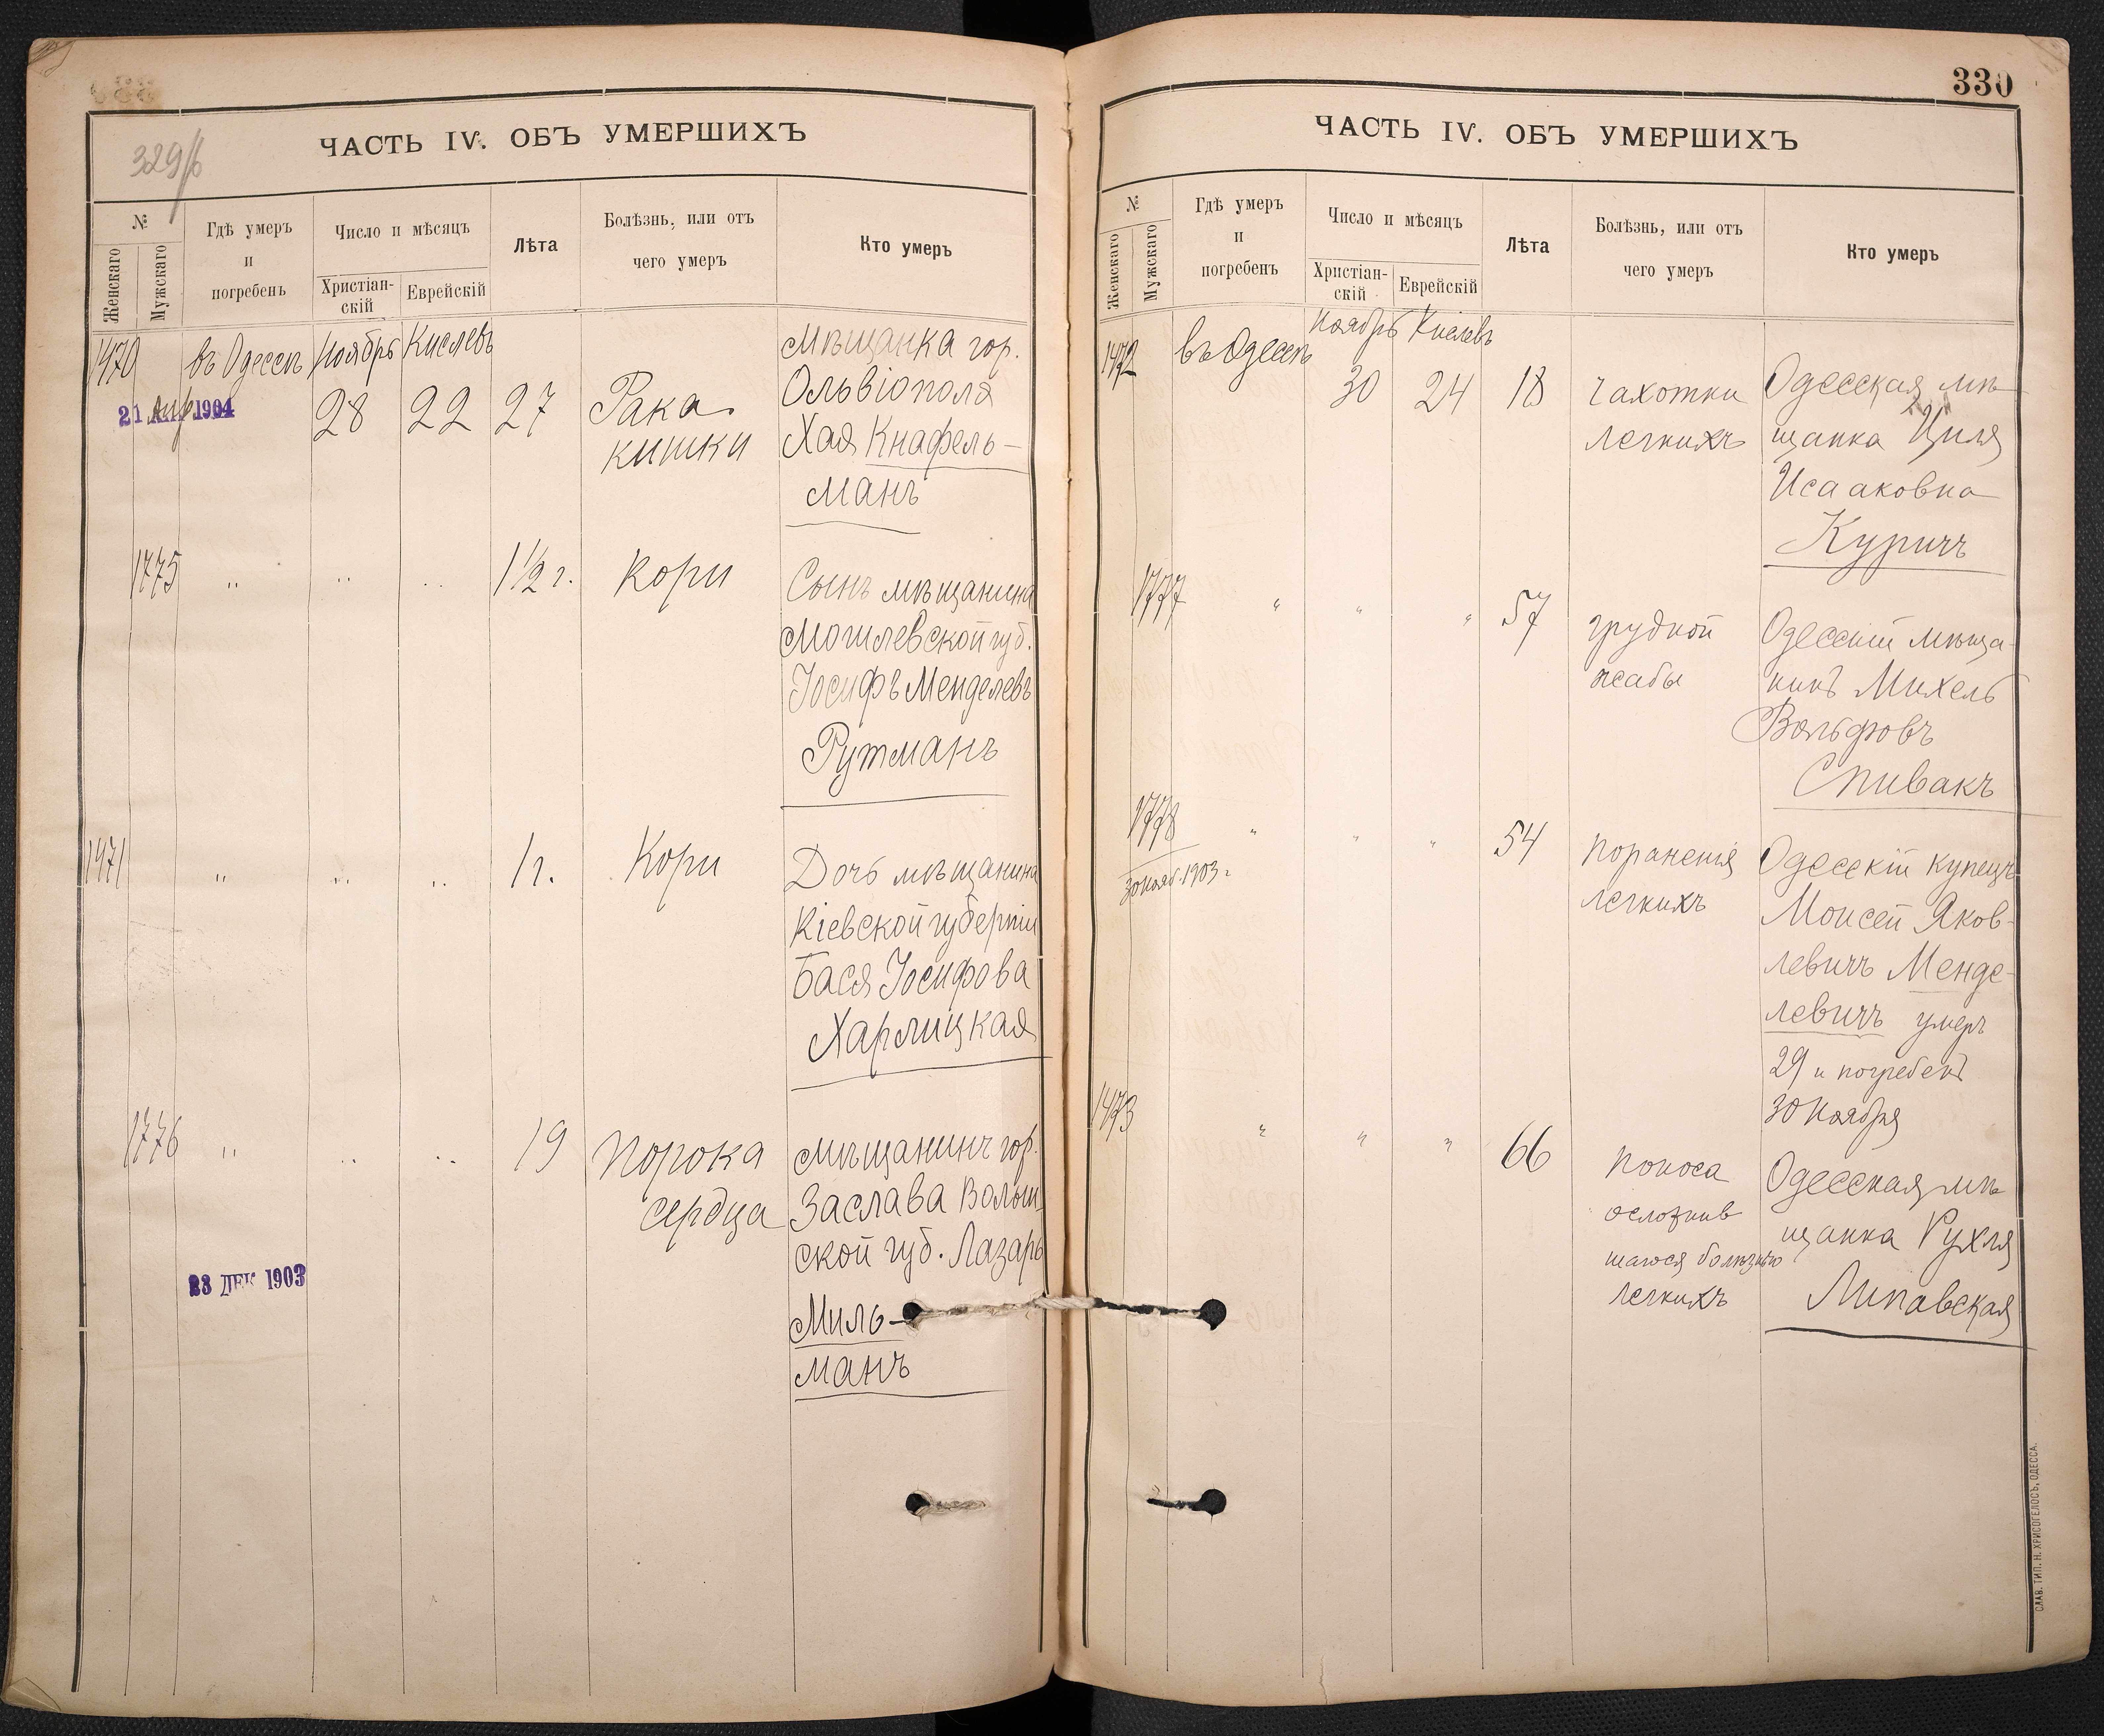 329/б
ЧАСТЬ IV. ОБЪ УМЕРШИХЪ
№
Женскаго
Мужскаго
Гдѣ умеръ
и
погребенъ
Число и мѣсяцъ
Христіан-
скій
Еврейскій
Лѣта
Болѣзнь, или отъ
чего умеръ
Кто умеръ
1470
въ Одессѣ
Ноябрь
Кислевъ
21 АПР 1904
28
22
27
Рака
кишки
Мѣщанка гор.
Ольвіополя
Хая Кнафель-
манъ
1775
"
"
"
1 1/2 г.
Кори
Сынъ мѣщанина
Могилевской губ.
Іосифъ Менделевъ
Рутманъ
1471
"
"
"
1 г.
Кори
Дочь мѣщанина
Кіевской губерніи
Бася Іосифова
Харлицкая
1776
"
"
"
19
Порока
сердца
Мѣщанинъ гор.
Заслава Волын-
ской губ. Лазарь
Миль-
манъ
23 ДЕК 1903
330
ЧАСТЬ IV. ОБЪ УМЕРШИХЪ
№
Женскаго
Мужскаго
Гдѣ умеръ
и
погребенъ
Число и мѣсяцъ
Христіан-
скій
Еврейскій
Лѣта
Болѣзнь, или отъ
чего умеръ
Кто умеръ
1472
въ Одессѣ
Ноябрь
Кислевъ
30
24
18
чахотки
легкихъ
Одесская мѣ-
щанка Циля
Исааковна
Куричъ
1777
"
"
"
57
грудной
жабы
Одесскій мѣща-
нинъ Михель
Вольфовъ
Спивакъ
1778
30 нояб. 1903 г.
"
"
"
54
пораженія
легкихъ
Одесскій купецъ
Моисей Яков-
левичъ Менде-
левичъ умеръ
29 и погребенъ
30 Ноября
1473
"
"
"
66
поноса
осложнив
шагося болѣзнью
легкихъ
Одесская мѣ
щанка Рухля
Липавская
СЛАВ. ТИП. Н. ХРИСОГЕЛОСЪ, ОДЕССА.